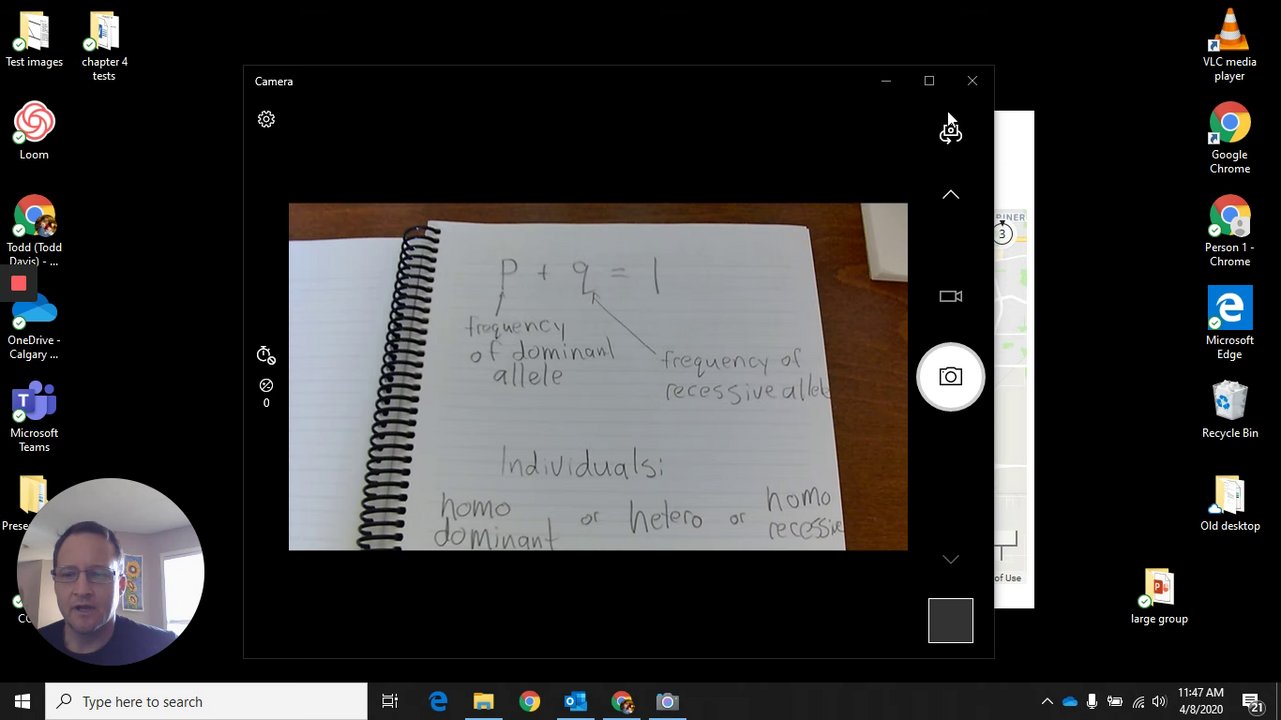 Test images
chapter 4
tests
Loom
Todd (Todd
Davis) - ...
OneDrive -
Calgary ...
Microsoft
Teams
Camera
0
p + q = 1
frequency
of dominant
allele
frequency of
recessive allele
Individuals:
homo
dominant
or
hetero
or
homo
recessive
3
of Use
VLC media
player
Google
Chrome
Person 1 -
Chrome
Microsoft
Edge
Recycle Bin
Old desktop
large group
Type here to search
11:47 AM
4/8/2020
21